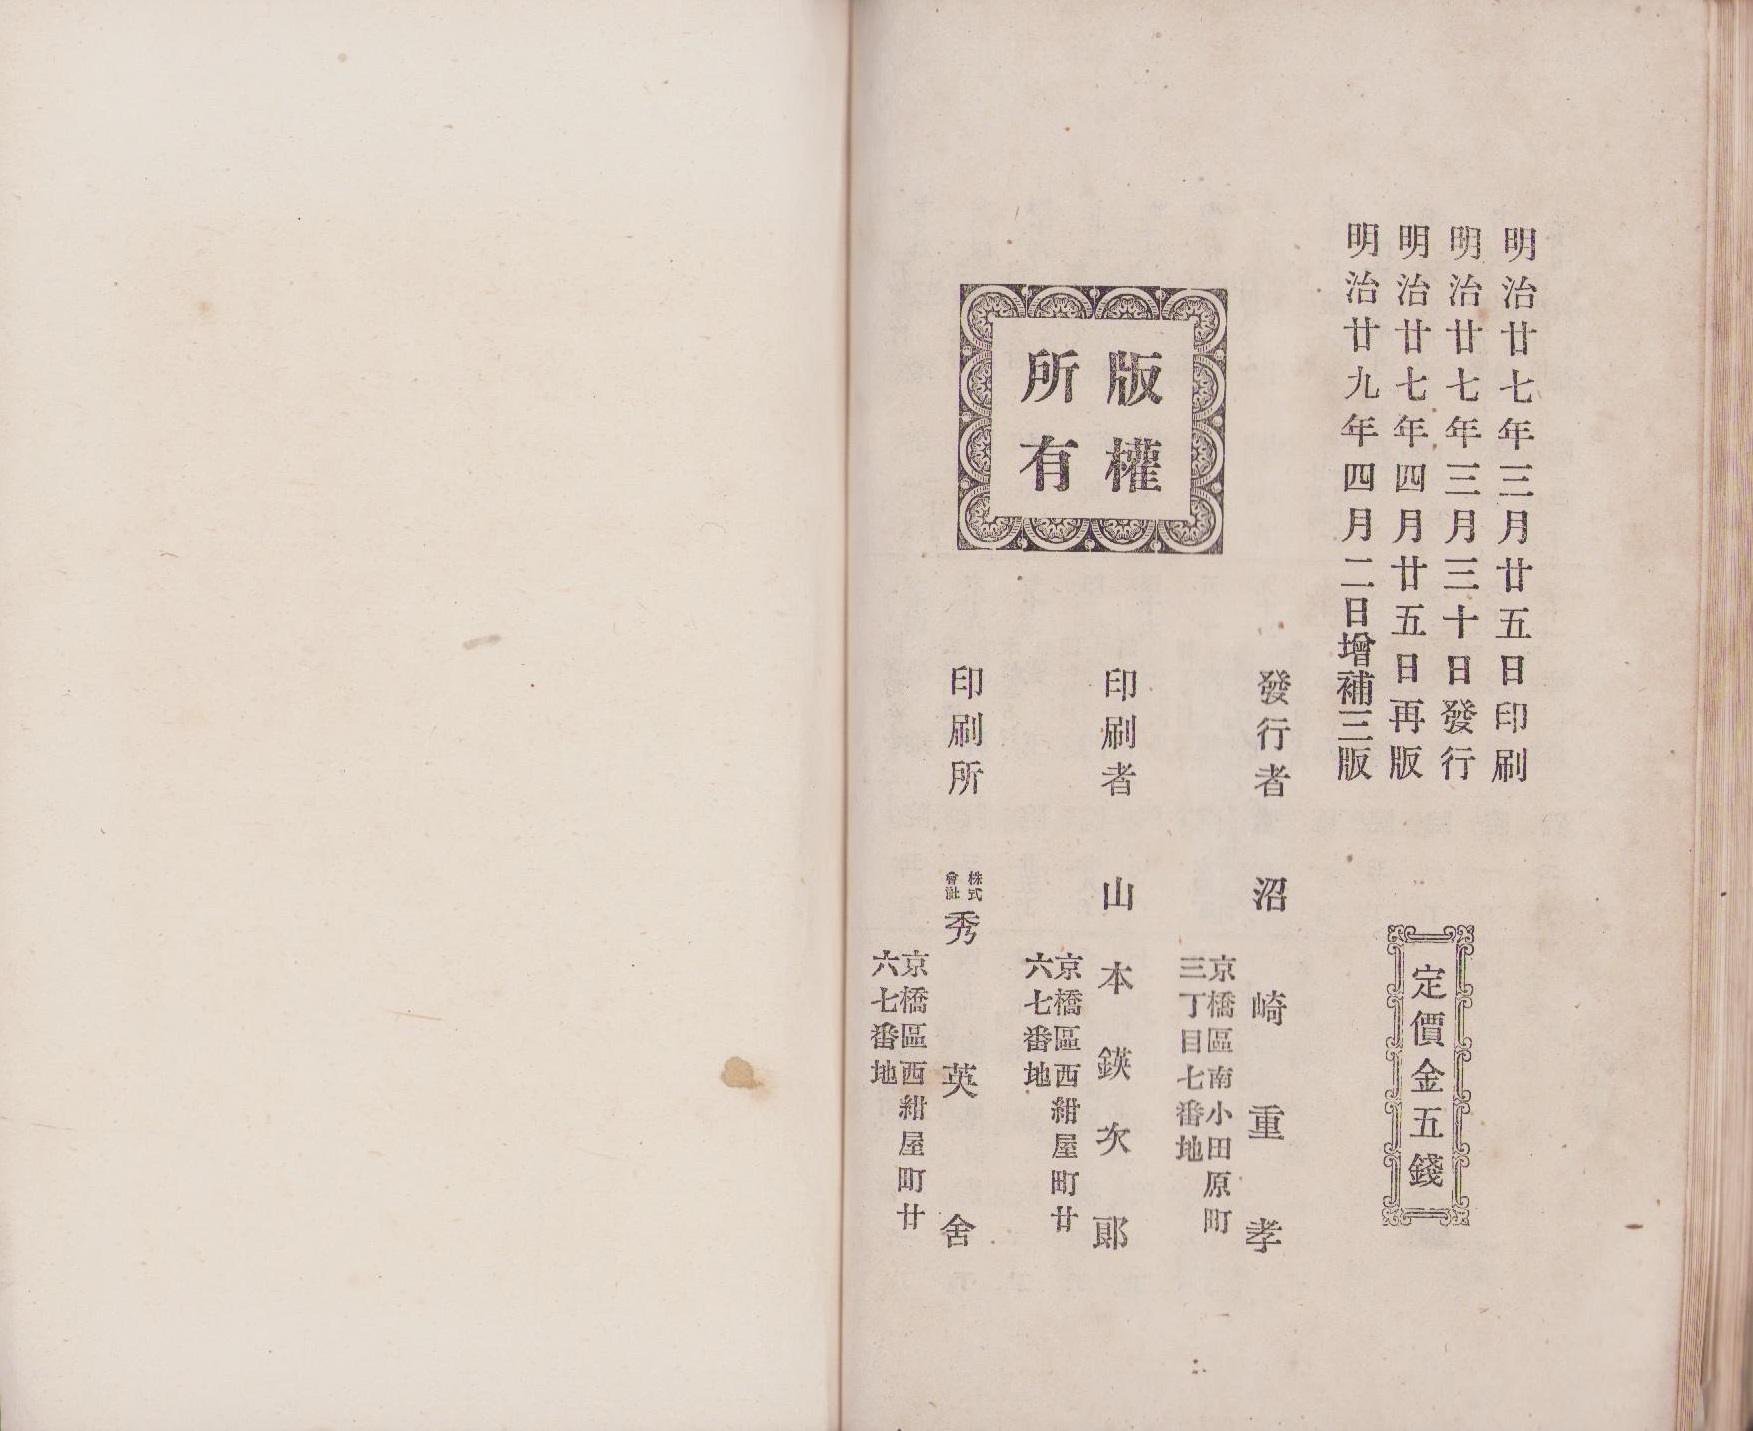 明治廿七年三月廿五日印刷
明治廿七年三月三十日發行
明治廿七年四月廿五日再版
明治廿九年四月二日增補三版
定價金五錢
版權
所有
發行者　沼崎重孝
京橋區南小田原町
三丁目七番地
印刷者　山本鍈次郎
京橋區西紺屋町廿
六七番地
印刷所　株式會社秀英舍
京橋區西紺屋町廿
六七番地